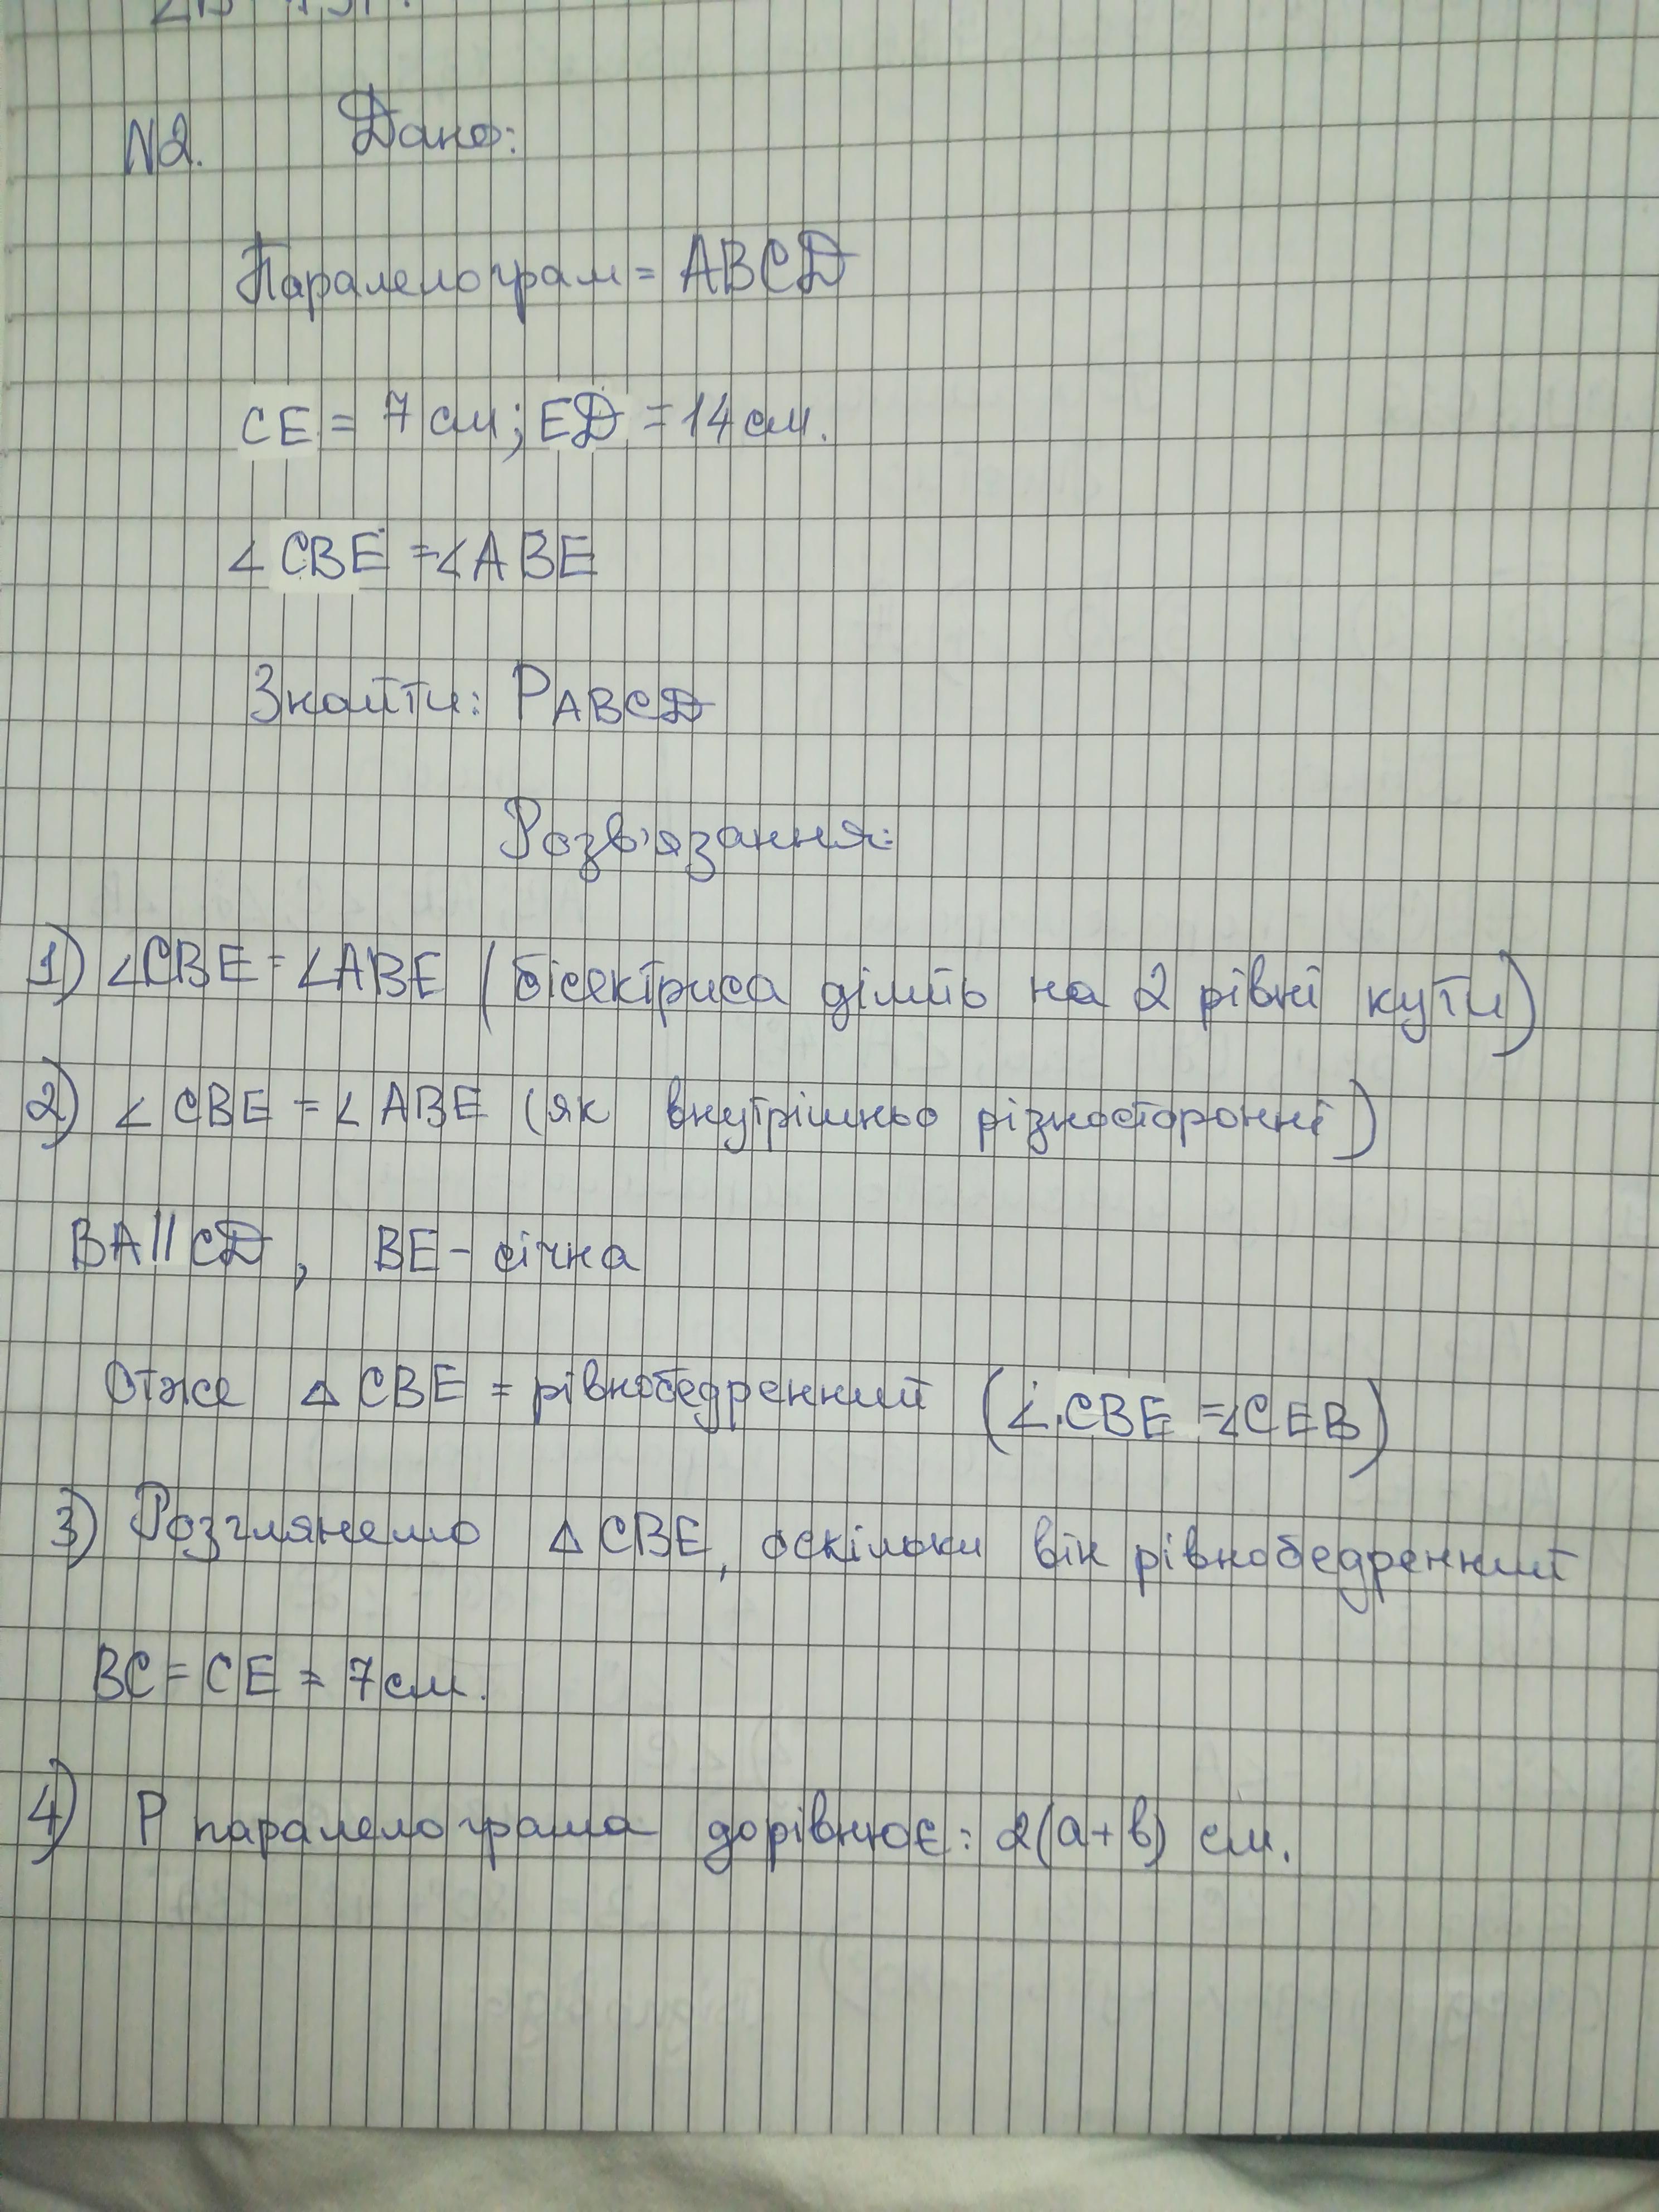 N2. Дано:
Паралелограм = ABCD
CE = 7 см; ED = 14 см.
∠ CBE = ∠ ABE
Знайти: PABCD
Розв'язання:
1) ∠CBE = ∠ABE (бісектриса ділить на 2 рівні кути)
2) ∠ CBE = ∠ ABE (як внутрішньо різносторонні)
BA || CD, BE - січна
Отже △ CBE = рівнобедренний (∠.CBE = ∠CEB)
3) Розглянемо △ CBE, оскільки він рівнобедренний
BC = CE = 7 см.
4) P паралелограма дорівнює: 2(a+b) см.